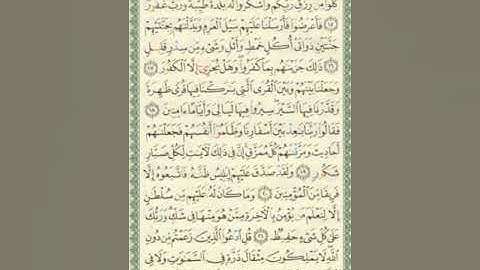 كُلُوا۟ مِن رِّزْقِ رَبِّكُمْ وَٱشْكُرُوا۟ لَهُۥ ۚ بَلْدَةٌ طَيِّبَةٌ وَرَبٌّ غَفُورٌ
﴿١٥﴾ فَأَعْرَضُوا۟ فَأَرْسَلْنَا عَلَيْهِمْ سَيْلَ ٱلْعَرِمِ وَبَدَّلْنَـٰهُم بِجَنَّتَيْهِمْ
جَنَّتَيْنِ ذَوَاتَىْ أُكُلٍ خَمْطٍ وَأَثْلٍ وَشَىْءٍ مِّن سِدْرٍ قَلِيلٍ
﴿١٦﴾ ذَٰلِكَ جَزَيْنَـٰهُم بِمَا كَفَرُوا۟ ۖ وَهَلْ نُجَـٰزِىٓ إِلَّا ٱلْكَفُورَ ﴿١٧﴾
وَجَعَلْنَا بَيْنَهُمْ وَبَيْنَ ٱلْقُرَى ٱلَّتِى بَـٰرَكْنَا فِيهَا قُرًى ظَـٰهِرَةً
وَقَدَّرْنَا فِيهَا ٱلسَّيْرَ ۖ سِيرُوا۟ فِيهَا لَيَالِىَ وَأَيَّامًا ءَامِنِينَ ﴿١٨﴾
فَقَالُوا۟ رَبَّنَا بَـٰعِدْ بَيْنَ أَسْفَارِنَا وَظَلَمُوٓا۟ أَنفُسَهُمْ فَجَعَلْنَـٰهُمْ
أَحَادِيثَ وَمَزَّقْنَـٰهُمْ كُلَّ مُمَزَّقٍ ۚ إِنَّ فِى ذَٰلِكَ لَـَٔايَـٰتٍ لِّكُلِّ صَبَّارٍ
شَكُورٍ ﴿١٩﴾ وَلَقَدْ صَدَّقَ عَلَيْهِمْ إِبْلِيسُ ظَنَّهُۥ فَٱتَّبَعُوهُ إِلَّا
فَرِيقًا مِّنَ ٱلْمُؤْمِنِينَ ﴿٢٠﴾ وَمَا كَانَ لَهُۥ عَلَيْهِم مِّن سُلْطَـٰنٍ
إِلَّا لِنَعْلَمَ مَن يُؤْمِنُ بِٱلْـَٔاخِرَةِ مِمَّنْ هُوَ مِنْهَا فِى شَكٍّ ۗ وَرَبُّكَ
عَلَىٰ كُلِّ شَىْءٍ حَفِيظٌ ﴿٢١﴾ قُلِ ٱدْعُوا۟ ٱلَّذِينَ زَعَمْتُم مِّن دُونِ
ٱللَّهِ ۖ لَا يَمْلِكُونَ مِثْقَالَ ذَرَّةٍ فِى ٱلسَّمَـٰوَٰتِ وَلَا فِى